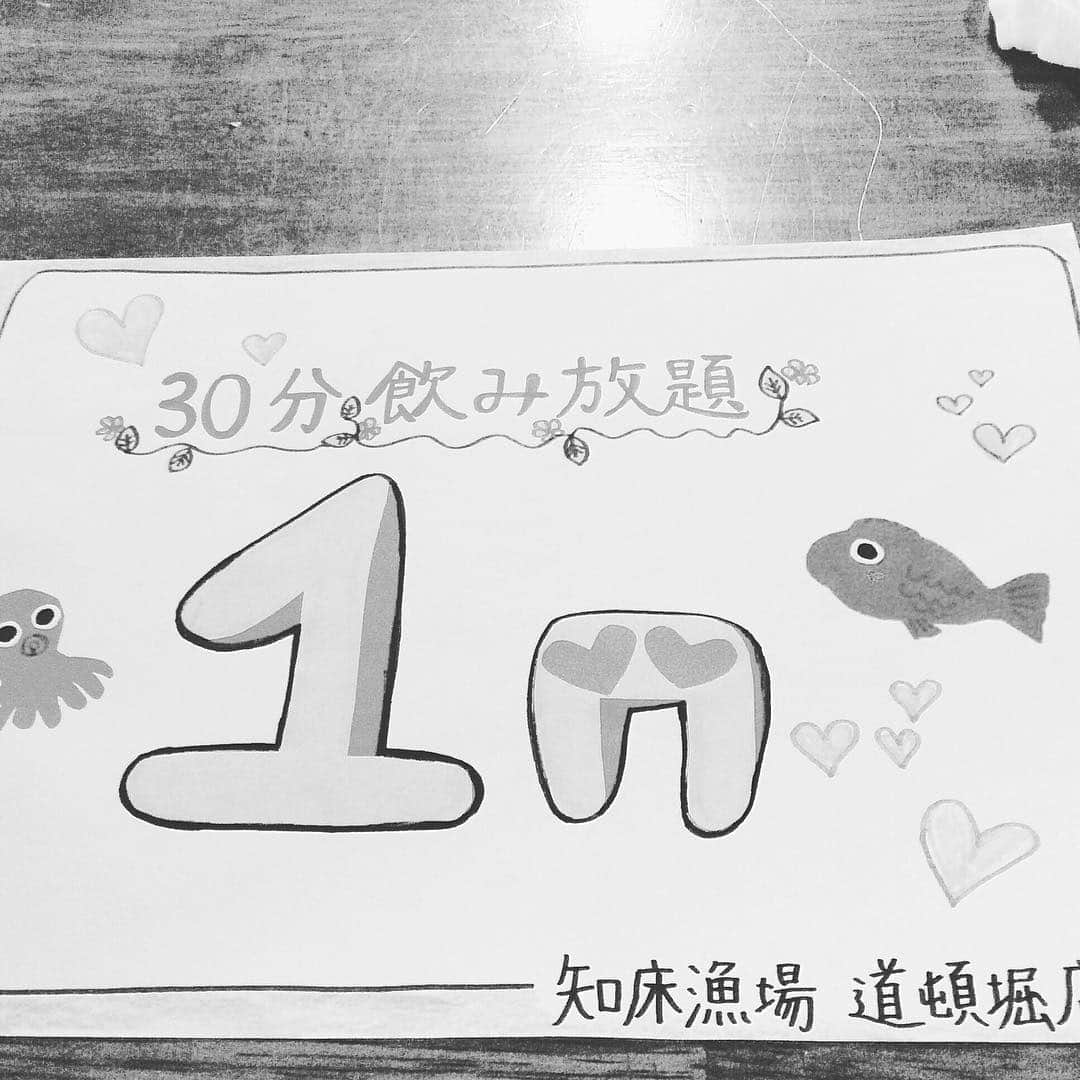 30分飲み放題
1円
知床漁場 道頓堀店